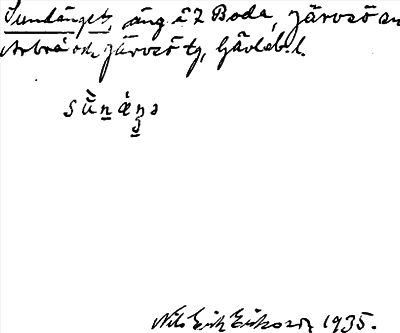 Sundänget, äng å 2 Boda, Järvsö sn
Arbrå och Järvsö tg, Gävleb. l.
Nils Erik Eriksson 1935.